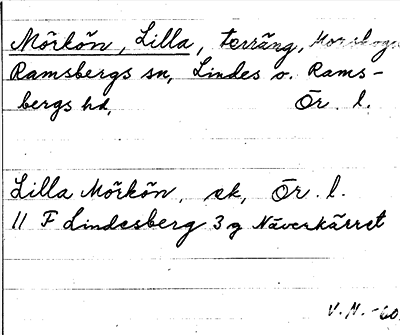 Mörkön, Lilla, terräng,
Ramsbergs sn, Lindes o. Rams-
bergs hd, Ör. l.
Lilla Mörkön, ek, Ör. l.
11 F Lindesberg 3 g Näverkärret
V. N. -60.